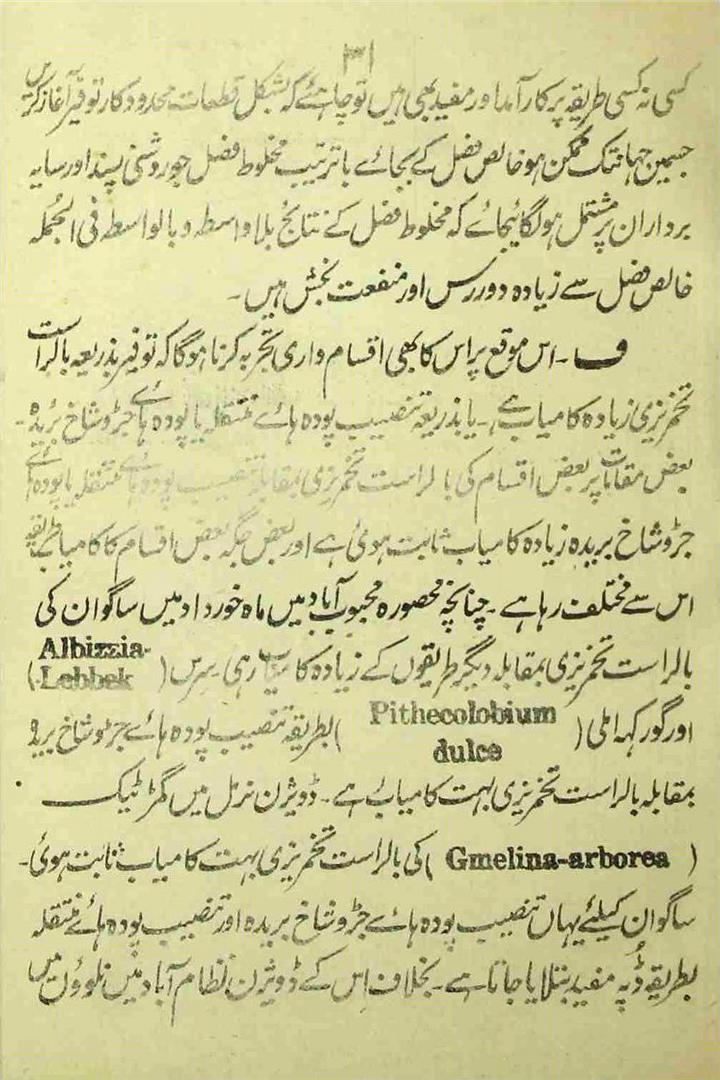 ۳۱
کسی نہ کسی طریقہ پر کار آمد اور مفید بھی ہیں تو چاہئے کہ بشکل قطعات محدود کار توفیر آغاز کریں
جسمین جہانتک ممکن ہو خالص فضل کے بجائے باترتیب مخلوط فضل جو روشنی پسند اور سایہ
برداران پر مشتمل ہو لگائیجائے کہ مخلوط فضل کے نتائج بلا واسطہ و بالواسطہ فی الجُملہ
خالص فضل سے زیادہ دوررس اور منفعت بخش ہیں ۔
ف ۔ اس موقع پر اس کا بھی اقسام واری تجربہ کرنا ہوگا کہ توفیر بذریعہ بالراست
تخمریزی زیادہ کامیاب ہے ۔ یا بذریعہ تنصیب پودہ ہائے منتقلہ یا پودہ ہائے جڑوشاخ بُریدہ ۔
بعض مقامات پر بعض اقسام کی بالراست تخمریزی بمقابلہ تنصیب پودہ ہائے منتقلہ یا پودہ ہائے
جڑوشاخ بریدہ زیادہ کامیاب ثابت ہوئی ہے اور بعض جگہ بعض اقسام کا کامیاب طریقہ
اس سے مختلف رہا ہے ۔ چنانچہ محصورہ محبوب آباد میں ماہ خورداد میں ساگوان کی
بالراست تخمریزی بمقابلہ دیگر طریقوں کے زیادہ کامیاب رہی سرس ( Albizzia-Lebbek )
اور گورکہہ املی ( Pithecolobium dulce ) بطریقہ تنصیب پودہ ہائے جڑوشاخ بریدہ
بمقابلہ بالراست تخمریزی بہت کامیاب ہے ۔ ڈویژن نرمل میں گمر ٹیک
( Gmelina-arborea ) کی بالراست تخمریزی بہت کامیاب ثابت ہوئی ۔
ساگوان کیلئے یہاں تنصیب پودہ ہائے جڑوشاخ بریدہ اور تنصیب پودہ ہائے منتقلہ
بطریقہ ڈپہ مفید بتلایا جاتا ہے ۔ بخلاف اِس کے ڈویژن نظام آباد میں نلوؤں میں